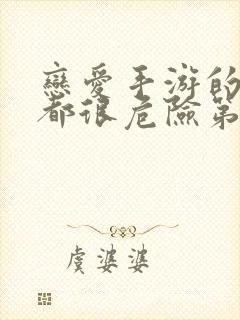 戀愛手游的
都很危險第
虞婆婆